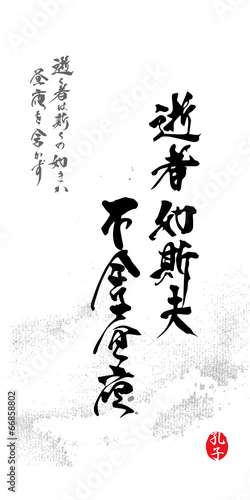 逝者如斯夫
不舍昼夜
逝く者は斯くの如きか
昼夜を舍かず
孔子
Adobe Stock | #66858802